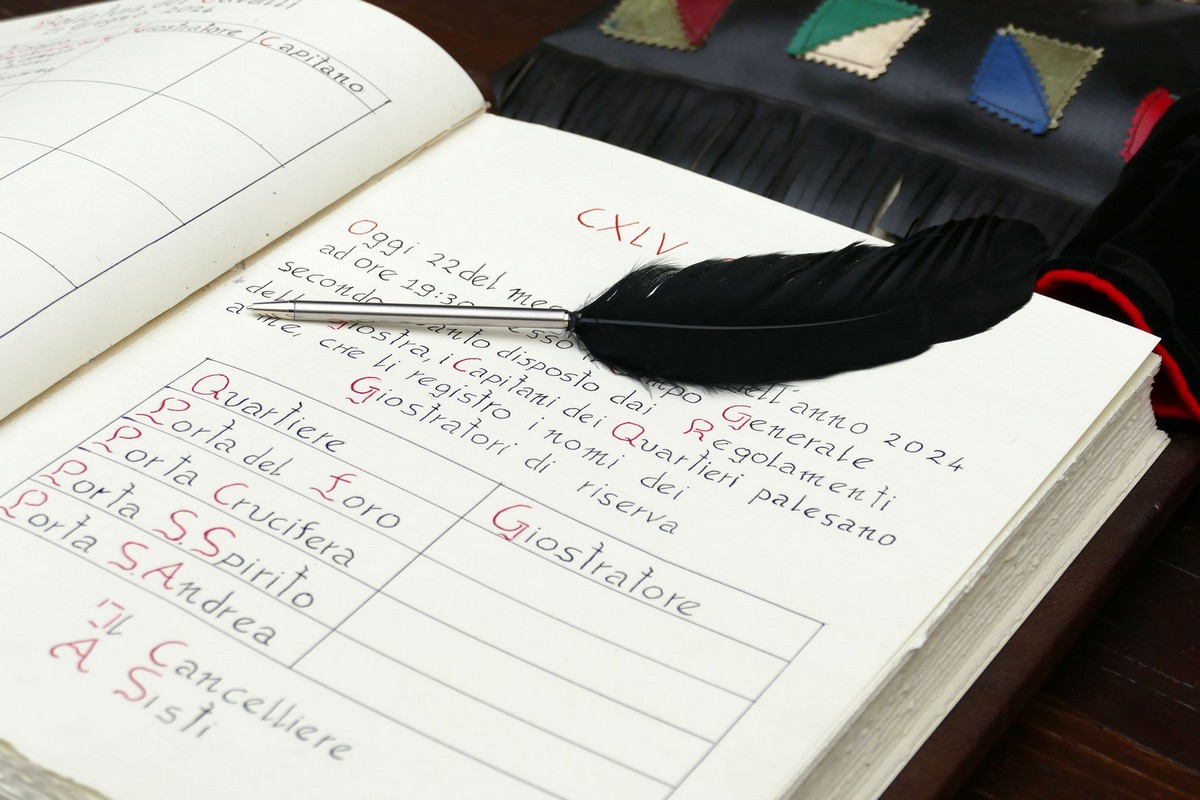 Giostratore
Capitano
CXLV
Oggi 22 del dell'anno 2024
ad ore 19:30 Generale
secondo quanto disposto dai Regolamenti
della Giostra, i Capitani dei Quartieri palesano
a me, che li registro i nomi dei
Giostratori di riserva
Quartiere
Giostratore
Porta del Foro
Porta Crucifera
Porta S.Spirito
Porta S.Andrea
Il Cancelliere
A Sisti